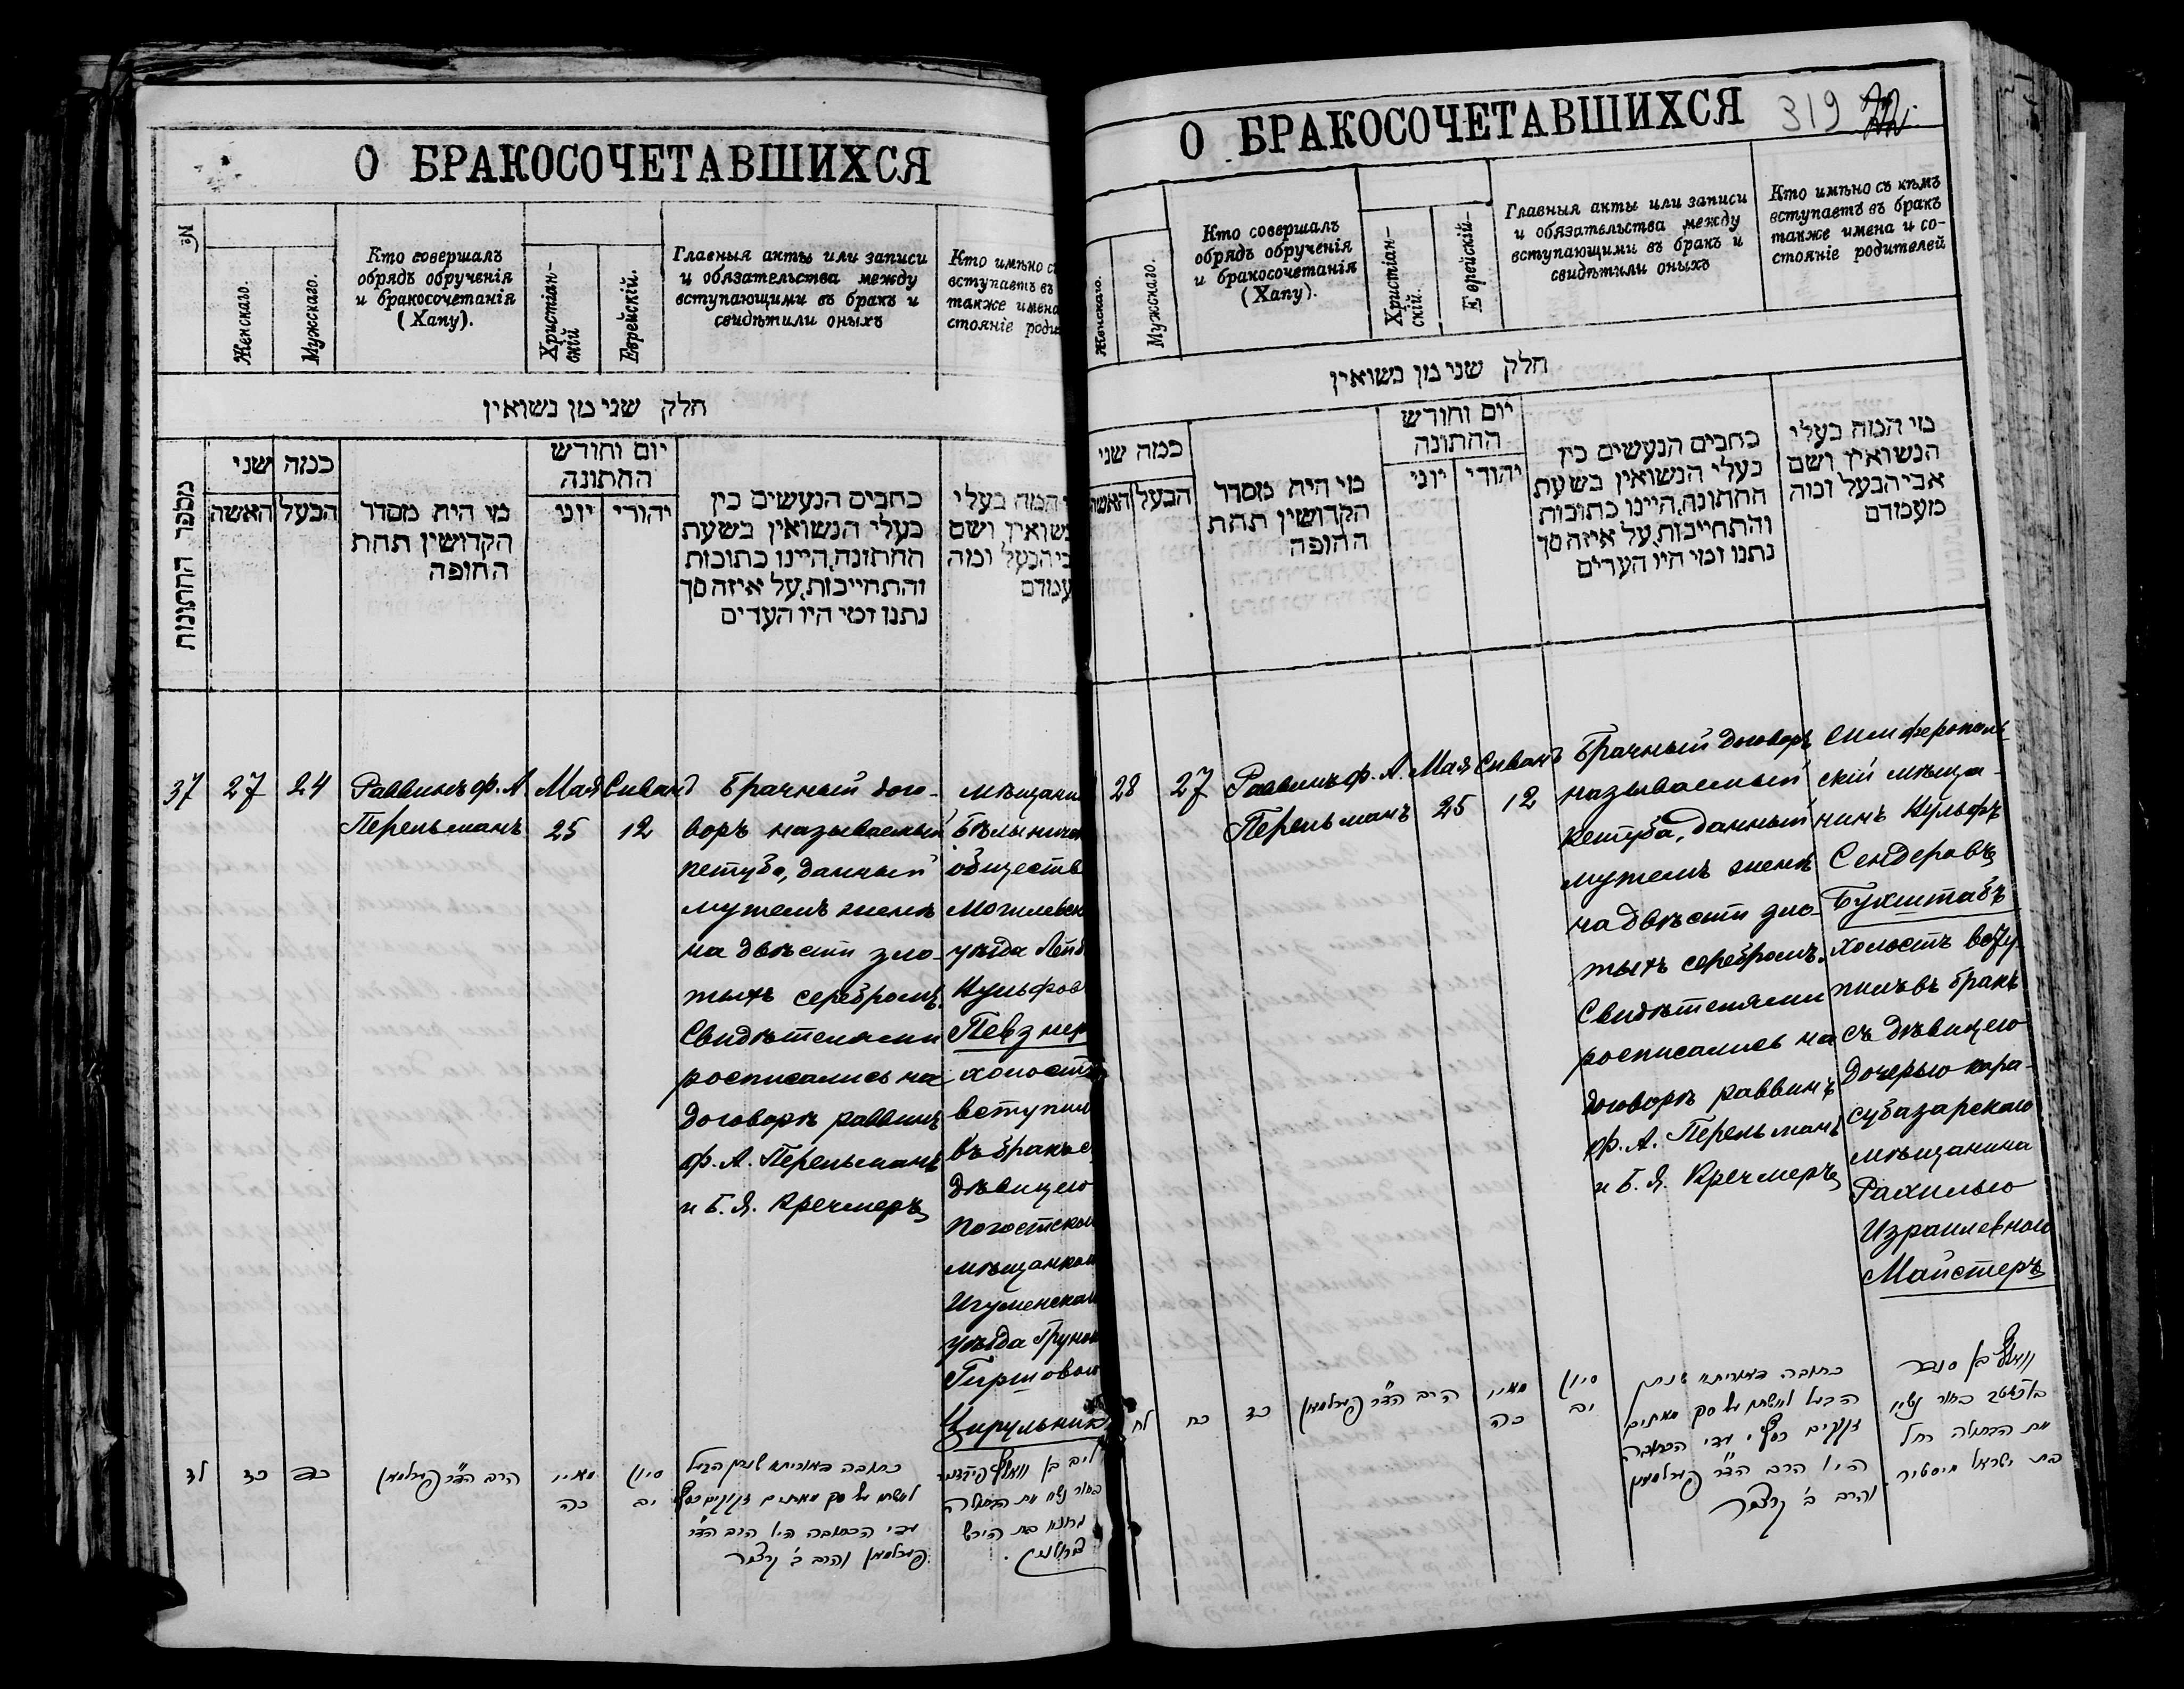 О БРАКОСОЧЕТАВШИХСЯ
№
Женскаго.
Мужскаго.
Кто совершалъ
обрядъ обрученія
и бракосочетанія
(Хапу).
Христіан-
скій
Еврейскій.
Главныя акты или записи
и обязательства между
вступающими въ бракъ и
свидѣтили оныхъ
Кто имѣно с
вступаетъ въ
также имена
стояніе роди
חלק שני מן נשואין
מספר החתונות
כמה שני
האשה
הבעל
מי היה מסדר
הקדושין תחת
החופה
יום וחודש
החתונה
יוני
יהודי
כתבים הנעשים בין
בעלי הנשואין בשעת
החתונה, היינו כתובות
והתחייבות, על איזה סך
נתנו ומי היו העדים
המה בעלי
נשואין ושם
בי הבעל ומה
עמדם
37
27
24
Раввинъ ф. А.
Перельманъ
Мая
25
Сиванъ
12
Брачный дого-
воръ называемый
кетуба, данный
мужемъ женѣ
на двѣсти зло-
тыхъ серебромъ.
Свидѣтелями
росписались на
договорѣ раввинъ
ф. А. Перельманъ
и Б. Я. Кречмеръ
мѣщани
Бѣлынич
обществ
Могилевск
уѣзда Лейб
Вульфов
Певзнер
холостъ
вступил
въ бракъ с
дѣвицею
Погостскою
мѣщанкою
Игуменскаго
уѣзда Груней
Гиршовою
Цирульник
לד
כד
הרב הד״ר פערלמאן
מאיי
כה
סיון
יב
כתובה דאוריתא שנתן הבעל
לאשתו על סך מאתים זקוקים כסף
עדי הכתובה היו הרב הד״ר
פערלמאן והרב ב׳ קרצמר
ליב בן וואלף פעווזנער
בחור נשא את הבתולה
גרוניא בת הירש
О БРАКОСОЧЕТАВШИХСЯ
319
Женскаго.
Мужскаго.
Кто совершалъ
обрядъ обрученія
и бракосочетанія
(Хапу).
Христіан-
скій.
Еврейскій-
Главныя акты или записи
и обязательства между
вступающими въ бракъ и
свидѣтили оныхъ
Кто имѣно съ кѣмъ
вступаетъ въ бракъ
также имена и со-
стояніе родителей
חלק שני מן נשואין
כמה שני
האשה
הבעל
מי היה מסדר
הקדושין תחת
החופה
יום וחודש
החתונה
יוני
יהודי
כתבים הנעשים בין
בעלי הנשואין בשעת
החתונה, היינו כתובות
והתחייבות, על איזה סך
נתנו ומי היו העדים
מי המה בעלי
הנשואין ושם
אבי הבעל ומה
מעמדם
28
27
Раввинъ ф. А.
Перельманъ
Мая
25
Сиванъ
12
Брачный договоръ
называемый
кетуба, данный
мужемъ женѣ
на двѣсти зло-
тыхъ серебромъ.
Свидѣтелями
росписались на
договорѣ раввинъ
ф. А. Перельманъ
и Б. Я. Кречмеръ
Симферополь-
скій мѣща-
нинъ Вульфъ
Сендеровъ
Букштабъ
холостъ всту-
пилъ въ бракъ
съ дѣвицею
дочерью кара-
субазарскаго
мѣщанина
Рахилью
Израилевною
Майстеръ
לח
כח
כז
הרב הד״ר פערלמאן
מאיי
כה
סיון
יב
כתובה דאוריתא שנתן
הבעל לאשתו על סך מאתים
זקוקים כסף עדי הכתובה
היו הרב הד״ר פערלמאן
והרב ב׳ קרצמר
וואלף בן סנדר
בוקשטב בחור נשא
את הבתולה רחל
בת ישראל מייסטיר.